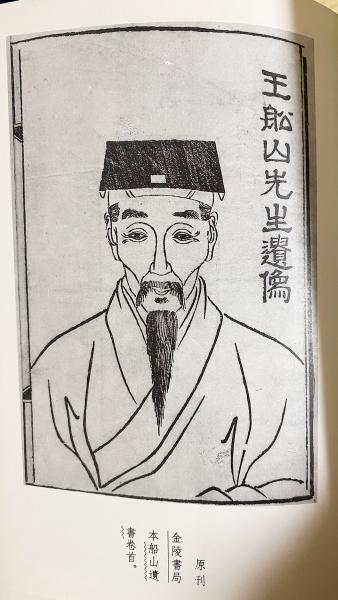 王船山先生遺像
原刊
金陵書局
本船山遺
書卷首。